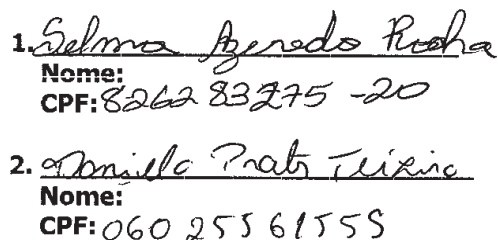 1. Selma Azeredo Rocha
Nome:
CPF: 826283275-20
2. Daniella Prats Teixeira
Nome:
CPF: 06025561555